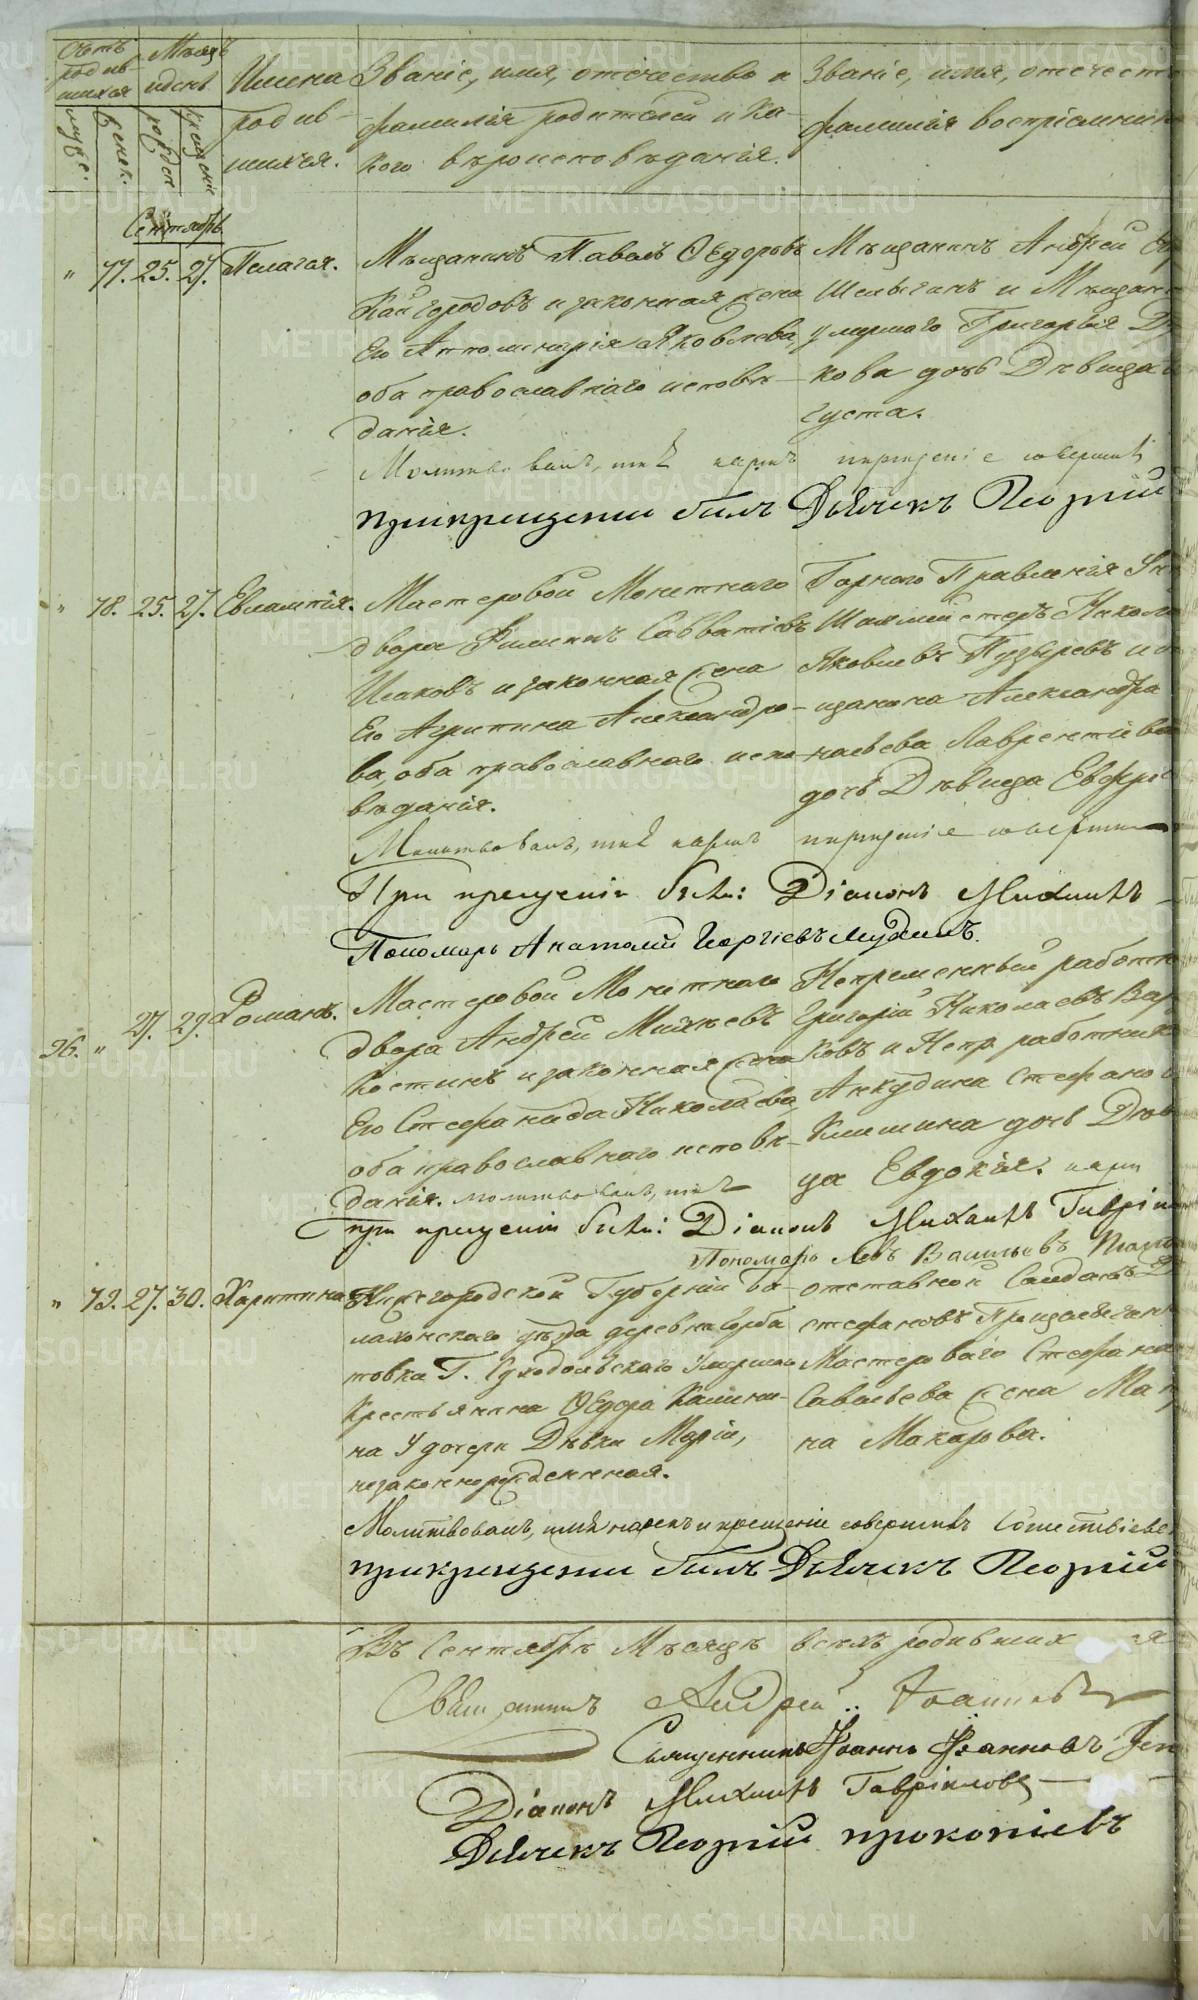 Счетъ родив-шихся
мужс.
женск.
Мѣсяцъ и день
рожден
крещенiе
Имена родив-шихся.
Званiе, имя, отечество и
фамилiя родителей и ка-
кого вѣроисповѣданiя.
Званiе, имя, отечест
фамилiя воспрiемник
Сентябрь
" 77. 25. 27. Пелагая.
Мѣщанинъ Павелъ Ѳедоровъ
Кайгородовъ и законная жена
Его Апполинарiя Яковлева,
оба православнаго исповѣ-
данiя.
Мѣщанинъ Андрей
Шелыганъ и Мѣщан
умершаго Григорья
кова дочь Дѣвица
густа.
Молитвовалъ, имя нарекъ крещенiе совершилъ
При крещенiи былъ Дьячекъ Георгiй
" 78. 25. 27. Евлампiя.
Мастеровой Монетнаго
двора Филипъ Савватiевъ
Исаковъ и законная жена
Его Агрипина Александро-
ва, оба православнаго испо-
вѣданiя.
Горнаго Правленiя
Шихтмейстеръ Никола
Яковлевъ Пузыревъ и
щанина Александра
Лаврентiева
дочь Дѣвица Евфро
Молитвовалъ, имя нарекъ крещенiе совершилъ
При крещенiи были: Дiаконъ Михаилъ
Пономарь Анатолiй Георгiевъ
96. " 27. 29. Романъ.
Мастеровой Монетнаго
двора Андрей Михѣевъ
Костинъ и законная жена
Его Стефанида Николаева,
оба православнаго исповѣ-
данiя. Молитвовалъ, имя
Непременный работн
Григорiй Николаевъ Вар
ковъ и Непр. работника
Анкудина Стефанов
Клишина дочь Дѣв
ца Евдокiя. наре
При крещенiи были: Дiаконъ Михаилъ Гаврiи
Пономарь Левъ Васильевъ
" 79. 27. 30. Харитина
Нижегородской Губернiи Ба-
лахонскаго уѣзда деревни Горба
товки Г. Суходольскаго умершаго
Крестьянина Ѳедора Калини-
на у дочери Дѣвки Марiи,
незаконнорожденная.
отставной Солдатъ
Стефановъ
Мастероваго Стефана
Савельева жена Ма
на Макарова.
Молитвовалъ, имя нарекъ и крещенiе совершилъ
При крещенiи былъ Дьячекъ Георгiй
Въ Сентябрѣ Мѣсяцѣ всехъ родившихся
Священникъ Андрей Iоанновъ
Священникъ Iоаннъ Iоанновъ
Дiаконъ Михаилъ Гаврiиловъ
Дьячекъ Георгiй Прокопiевъ